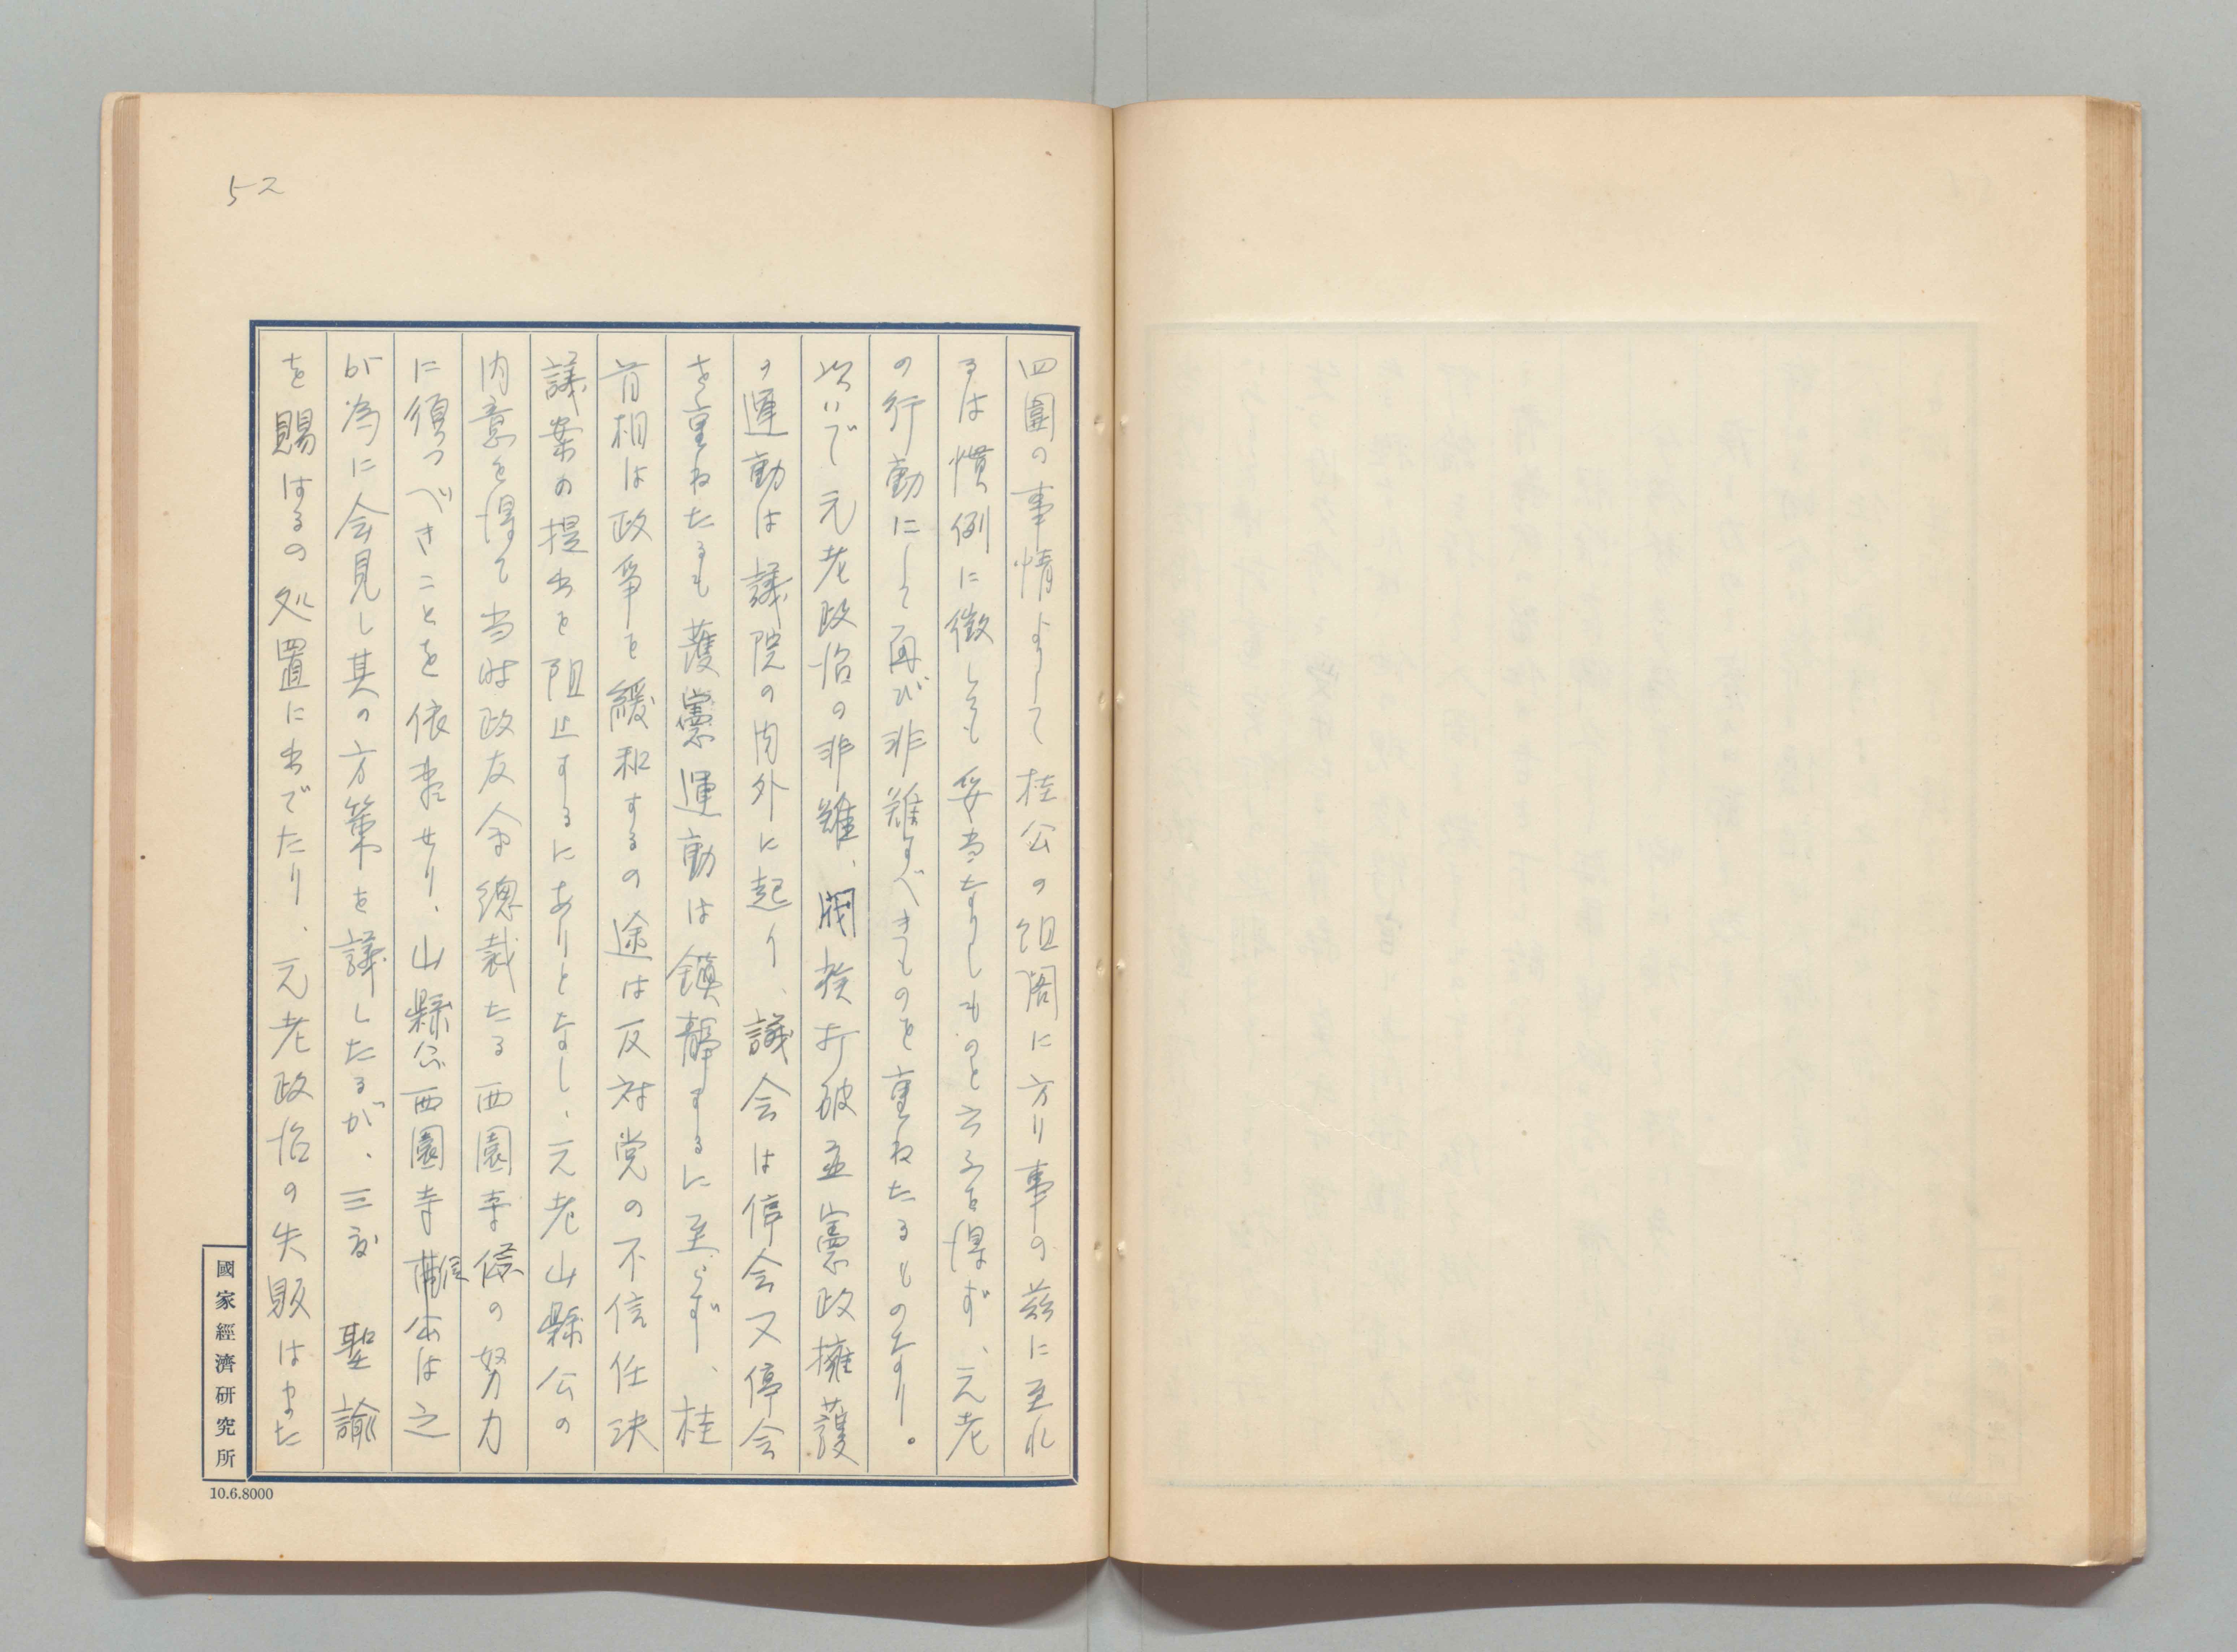 52
四圍の事情よりして桂公の組閣に方り事の茲に至れ
るは慣例に徴しても妥当なりしものと云ふを得ず、元老
の行動にして再び非難すべきものを重ねたるものなり。
次いで元老政治の非難、閥族打破並憲政擁護
の運動は議院の内外に起り、議会は停会又停会
を重ねたるも護憲運動は鎮静するに至らず、桂
首相は政争を緩和するの途は反対党の不信任決
議案の提出を阻止するにありとなし、元老山縣公の
内意を得て当時政友会總裁たる西園寺侯の努力
に須つべきことを依書せり、山縣公西園寺侯は之
が為に会見し其の方策を議したるが、三度 聖諭
を賜はるの処置に出でたり、元老政治の失敗はまた
國家經濟研究所
10.6.8000